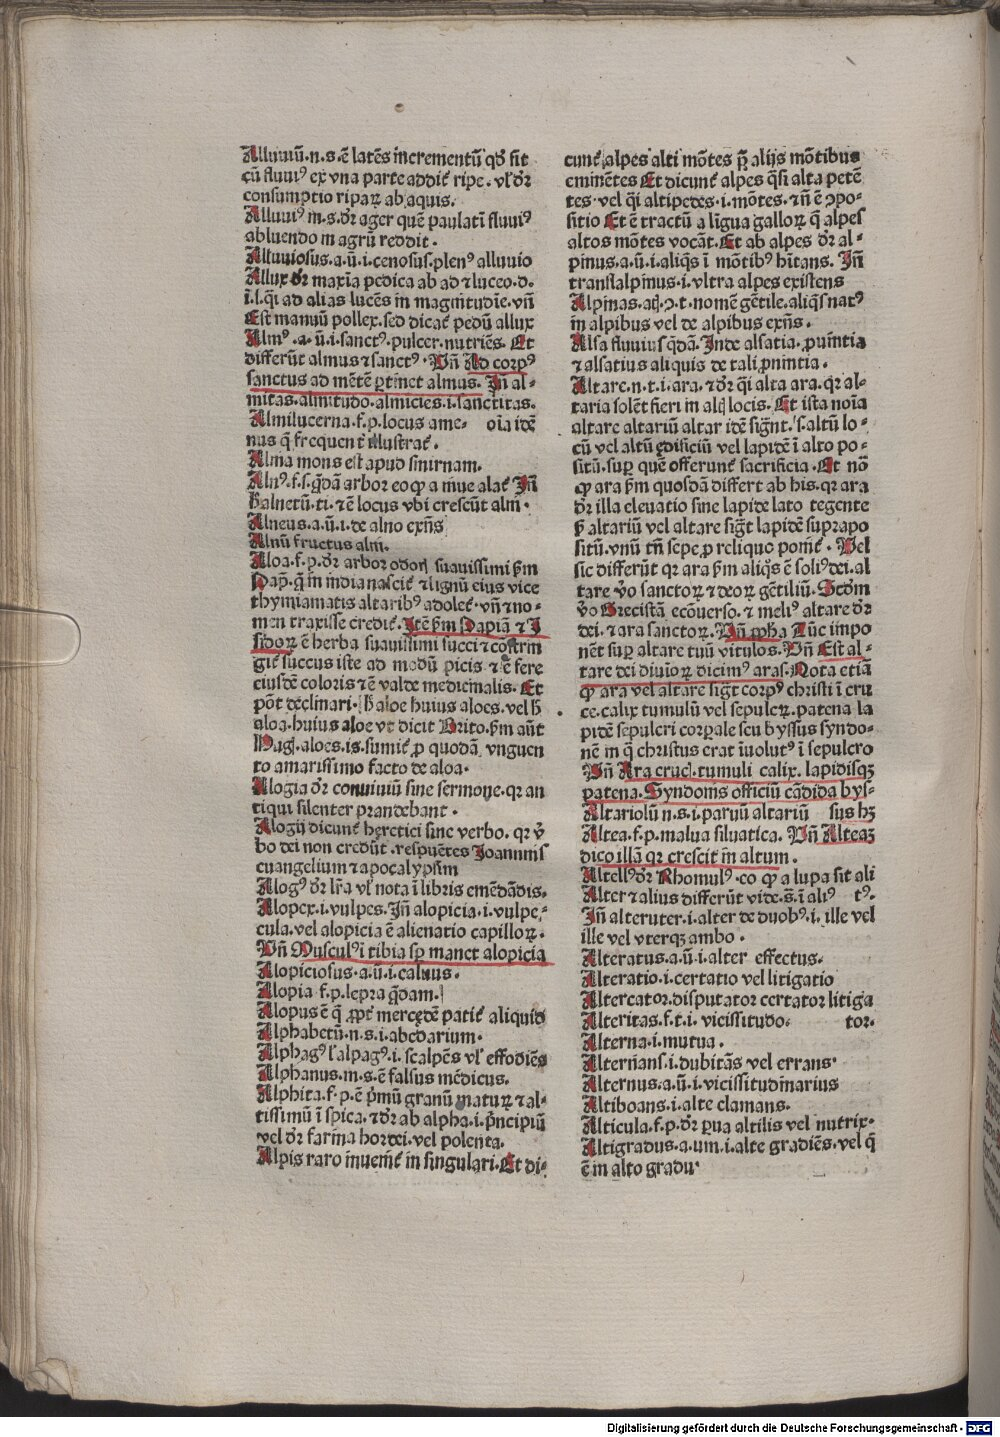 Alluuiū.n.s.ē latēs incrementū qđ fit
cū fluuiꝰ ex vna parte addit ripe. vl' dr̄
consumptio ripaꝝ ab aquis.
Alluuiꝰ m.s.dr̄ ager quē paulati fluuiꝰ
abluendo in agrū reddit.
Alluuiosus.a.ū.i.cenosus.plenꝰ alluuio
Allux dr̄ maxīa pedica ab ad ⁊ luceo.d.
i.l.q̄i ad alias lucēs in magnitudīe.vn̄
Est manuū pollex.sed dicat̄ pedū allux
Almꝰ.a.ū.i.sanctꝰ.pulcer.nutriēs. Et
differūt almus ⁊ sanctꝰ. Vn̄ Ad corpꝰ
sanctus ad mētē ꝑtinet almus. Jn̄ al-
mitas.almitudo.almicies.i.sanctitas.
Almilucerna.f.p.locus ame- oīa idē
nus q̄ frequent̄ illustrat̄.
Alma mons est apud smirnam.
Alnꝰ.f.s.q̄dā arbor eo ꝙ a mue alat̄ Jn̄
h̄ alnetū.ti.⁊ ē locus vbi crescūt alni.
Alneus.a.ū.i.de alno exn̄s
Alnū fructus alni.
Aloa.f.p.dr̄ arbor odori suauissimi ẜm
Pap̄.q̄ in india nascit̄ ⁊ lignū eius vice
thymiamatis altaribꝰ adolet̄.vn̄ ⁊ no-
men traxisse credit̄. Jtē ẜm Papiā ⁊ J
sidoꝝ ē herba suauissimi succi ⁊ cōstrin
git̄ succus iste ad modū picis ⁊ ē fere
eiusdē coloris ⁊ ē valde medicinalis. Et
pōt declinari. h̄ aloe huius aloes.vel h̄
aloa.huius aloe vt dicit Brito.ẜm aūt
Hug.aloes.is.sumit̄ ꝓ quodā vnguen
to amarissimo facto de aloa.
Alogia dr̄ conuiuiū sine sermone.qꝛ an
tiqui silenter prandebant.
Alogij dicunt̄ heretici sine verbo.qꝛ v̄
bo dei non credūt.respuētes Joannnis
euangelium ⁊ apocalypsim
Alogꝰ dr̄ lr̄a vl' nota i libris emēdādis.
Alopex.i.vulpes. Jn̄ alopicia.i.vulpe-
cula.vel alopicia ē alienatio capilloꝝ.
Vn̄ Musculꝰ i tibia sꝑ manet alopicia
Alopiciosus.a.ū.i.caluus.
Alopia f.p.lepra q̄dam.
Alopus ē q̄ ꝓpt̄ mercedē patit̄ aliquid
Alphabetū.n.s.i.abcdarium.
Alphagꝰ l' alpagꝰ.i.scalpēs vl' effodiēs
Alphanus.m.s.ē falsus mēdicus.
Alphita.f.p.ē p̄mū granū matuꝝ ⁊ al-
tissimū i spica.⁊ dr̄ ab alpha.i.p̄ncipiū
vel dr̄ farina hordei.vel polenta.
Alpis raro inuenit̄ in singulari. Et di-
cunt̄ alpes alti mōtes p̄ alijs mōtibus
eminētes Et dicunt̄ alpes q̄si alta petē
tes.vel q̄i altipedes.i.mōtes.⁊ n̄ ē ↄpo-
sitio Et ē tractū a lingua galloꝝ q̄ alpes
altos mōtes vocāt. Et ab alpes dr̄ al-
pinus.a.ū.i.aliq̄s i mōtibꝰ hītans. Jn̄
transalpinus.i.vltra alpes existens
Alpinas.aꝗ.ↄ.t.nomē gētile.aliq̄s natꝰ
in alpibus vel de alpibus exn̄s.
Alsa fluuius q̄dā. Jnde alsatia ꝓuintia
⁊ alsatius aliquis de tali ꝓuintia.
Altare.n.t.i.ara.⁊ dr̄ q̄i alta ara.qꝛ al-
taria solēt fieri in alꝗ locis. Et ista noīa
altare altariū altar idē sign̄t.s.altū lo-
cū vel altū edificiū vel lapidē i alto po-
sitū.suꝑ quē offerunt̄ sacrificia. Et nō
ꝙ ara ẜm quosdā differt ab his.qꝛ ara
dr̄ illa eleuatio sine lapide lato tegente
ẜ altariū vel altare sign̄t lapidē supꝛapo
situ.vnū tn̄ sepe ꝓ reliquo ponit̄. Vel
sic differūt qꝛ ara ẜm aliq̄s ē soliꝰ dei.al
tare v̄o sanctoꝝ ⁊ deoꝝ gētiliū. Scdm
v̄o Grecistā ecōuerso.⁊ meliꝰ altare dr̄
dei.⁊ ara sanctoꝝ. Vn̄ ꝓpha Tūc impo
nēt suꝑ altare tuū vitulos. Vn̄ Est al-
tare dei diuioꝝ dicimꝰ aras. Nota etiā
ꝙ ara vel altare sign̄t corpꝰ christi i cru
ce.calix tumulū vel sepulcꝝ.patena la
pidē sepulcri corꝑale seu byssus syndo-
nē in q̄ christus erat iuolutꝰ i sepulcro
Vn̄ Ara cruc].tumuli calix.lapidisqꝫ
patena. Syndonis officiū cādida bys-
Altariolū n.s.i.paruū altariū sus hꝫ
Altea.f.p.malua siluatica. Vn̄ Alteaꝫ
dico illā qꝛ crescit in altum.
Altellꝰ dr̄ Rhomulꝰ.eo ꝙ a lupa sit ali
Alter ⁊ alius differūt vide.s̄.i aliꝰ tꝰ.
Jn̄ alteruter.i.alter de duobꝰ.i.ille vel
ille vel vterqꝫ ambo.
Alteratus.a.ū.i.alter effectus.
Alteratio.i.certatio vel litigatio
Altercator.disputator certator litiga
Alteritas.f.t.i.vicissitudo. tor.
Alterna.i.mutua.
Alternans.i.dubitās vel errans.
Alternus.a.ū.i.vicissitudinarius
Altiboans.i.alte clamans.
Alticula.f.p.dr̄ ꝑua altilis vel nutrix.
Altigradus.a.um.i.alte gradiēs.vel q̄
ē in alto gradu.
Digitalisierung gefördert durch die Deutsche Forschungsgemeinschaft - DFG